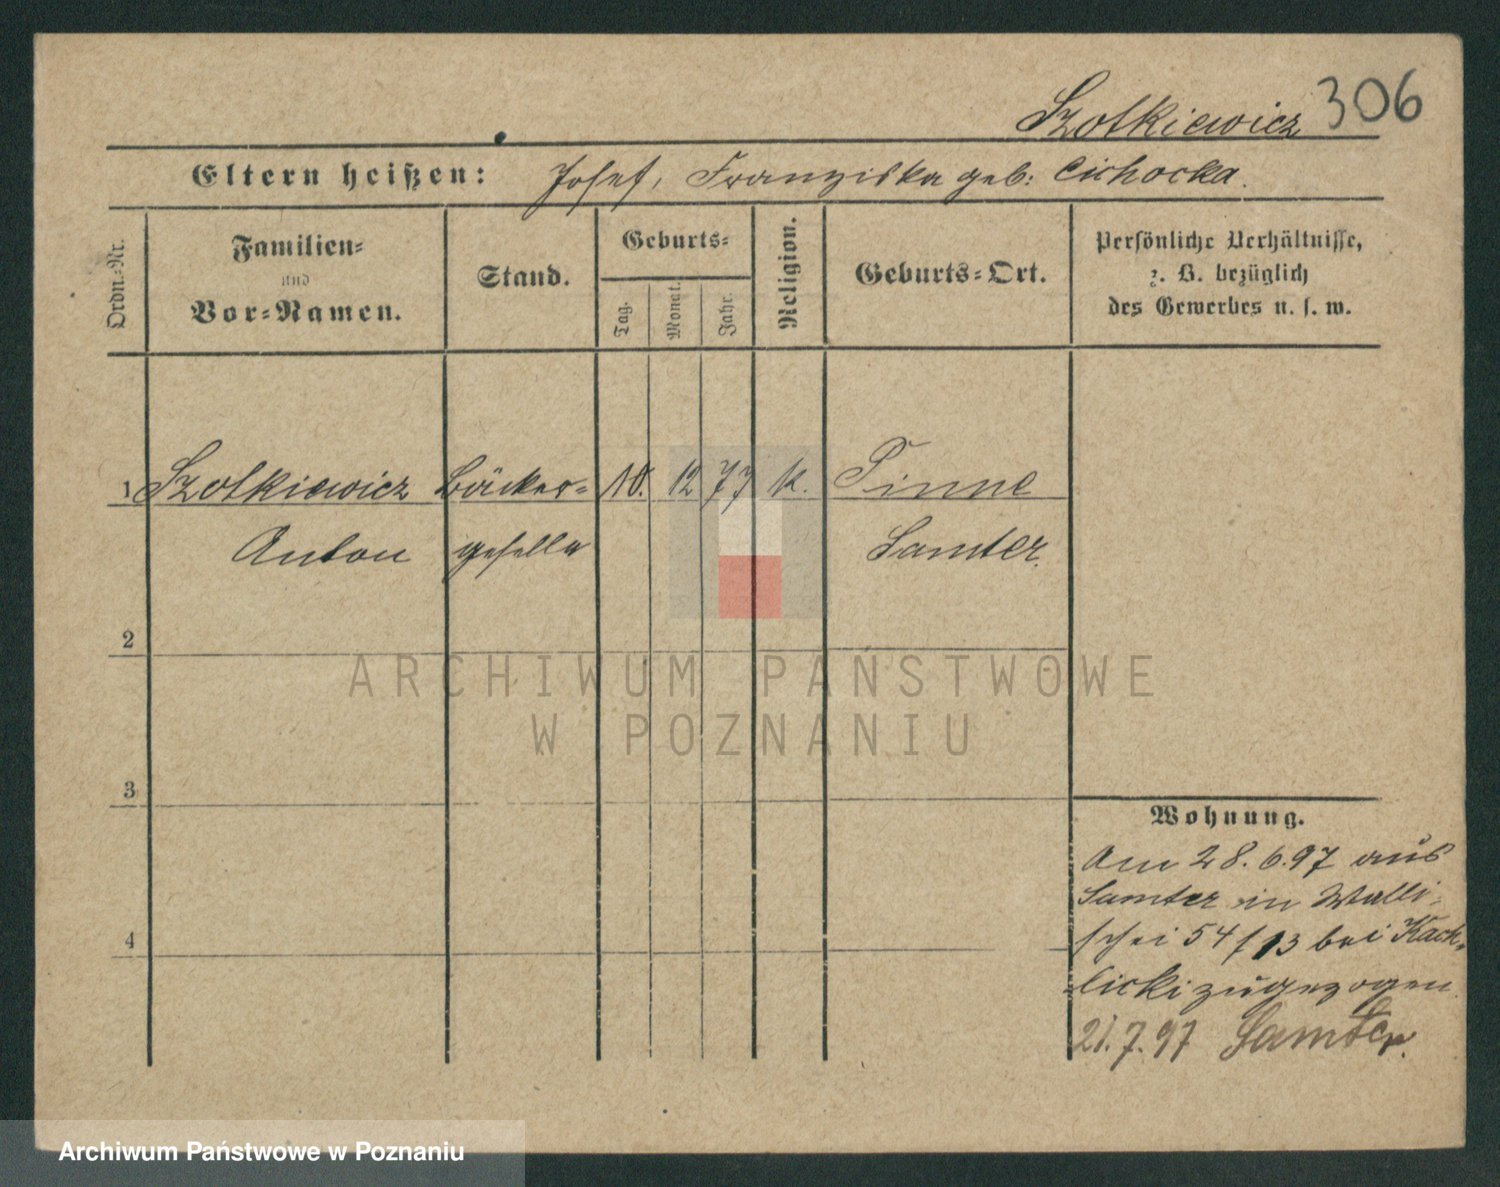 Szotkiewicz 306
Eltern heißen: Josef, Franziska geb: Cichocka.
Ordn.-Nr.
Familien-
und
Vor-Namen.
Stand.
Geburts-
Tag.
Monat.
Jahr.
Religion.
Geburts-Ort.
Persönliche Verhältnisse,
z. B. bezüglich
des Gewerbes u. s. w.
1 Szotkiewicz Bäcker- 10. 12 77 k. Pinne
Anton geselle Samter.
2
3
4
Wohnung.
Am 28.6.97 aus
Samter in Walli-
schei 54/13 bei Kack-
licki zugezogen.
21.7.97 Samter.
ARCHIWUM PAŃSTWOWE
W POZNANIU
Archiwum Państwowe w Poznaniu